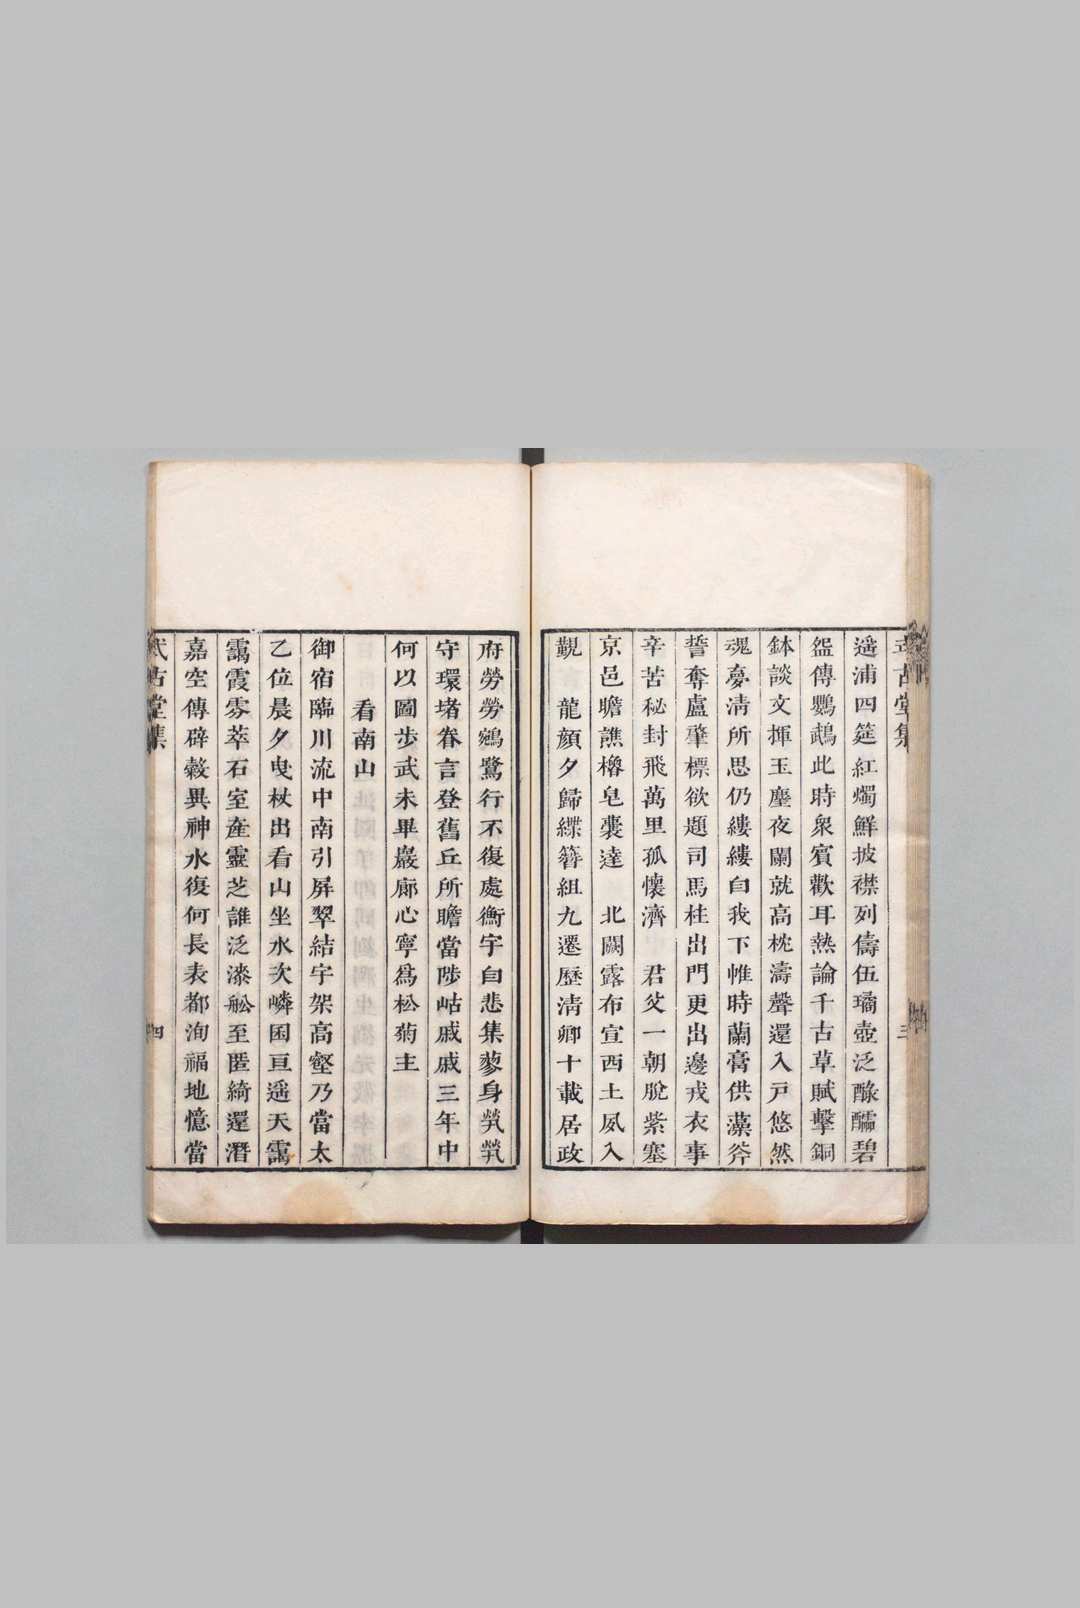 式古堂集
三
遥浦四筵紅燭鮮披襟列儔伍璚壺泛醁醹碧
篕傳鸚鵡此時衆賓歡耳熱論千古草賦擊銅
鉢談文揮玉麈夜闌就高枕濤聲還入戸悠然
魂夢清所思仍縷縷自我下帷時蘭膏供藻斧
誓奪盧肇標欲題司馬柱出門更出邊戎衣事
辛苦秘封飛萬里孤懷濟　君父一朝脫紫塞
京邑瞻譙櫓皂囊達　北闕露布宣西土夙入
覲　龍顔夕歸緤簪組九遷歷清卿十載居政
府勞勞鵷鷺行不復處衡宇自悲集蓼身煢煢
守環堵眷言登舊丘所瞻當陟岵戚戚三年中
何以圖步武未畢巖廊心寧爲松菊主
看南山
御宿臨川流中南引屏翠結宇架高壑乃當太
乙位晨夕曳杖出看山坐水次嶙囷亘遥天靄
靄霞雰萃石室產靈芝誰泛漆舩至匿綺還潛
嘉空傳辟穀異神水復何長表都洵福地憶當
式古堂集
四